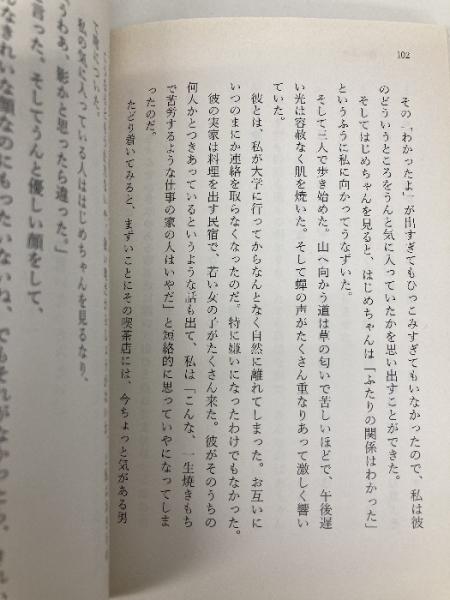 102
その「わかったよ」が出すぎてもひっこみすぎてもいなかったので、私は彼
のどういうところをうんと気に入っていたかを思い出すことができた。
そしてはじめちゃんを見ると、はじめちゃんは「ふたりの関係はわかった」
というふうに私に向かってうなずいた。
そして三人で歩き始めた。山へ向かう道は草の匂いで苦しいほどで、午後遅
い光は容赦なく肌を焼いた。そして蟬の声がたくさん重なりあって激しく響い
ていた。
彼とは、私が大学に行ってからなんとなく自然に離れてしまった。お互いに
いつのまにか連絡を取らなくなったのだ。特に嫌いになったわけでもなかった。
彼の実家は料理を出す民宿で、若い女の子がたくさん来た。彼がそのうちの
何人かとつきあっているというような話も出て、私は「こんな、一生焼きもち
で苦労するような仕事の家の人はいやだ」と短絡的に思っていやになってしま
ったのだ。
たどり着いてみると、まずいことにその喫茶店には、今ちょっと気がある男
て席についた。
私の気に入ってる人ははじめちゃんを見るなり、
「うわあ、影かと思ったら違った。」
と言った。そしてうんと優しい顔をして、
んなきれいな顔なのにもったいないね、でもそれが